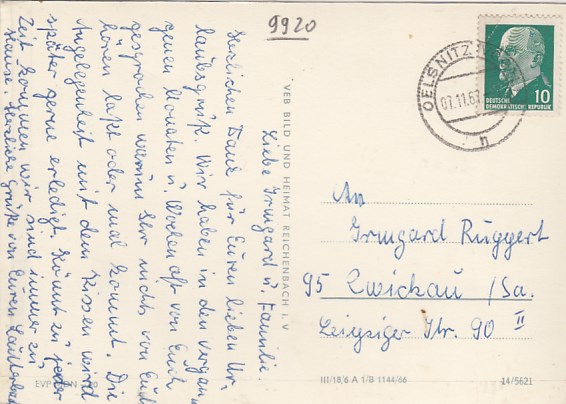 9920
Liebe Irmgard u. Familie.
Herzlichen Dank für Euren lieben Ur-
laubsgruß. Wir haben in den vergan-
genen Monaten u. Wochen oft von Euch
gesprochen warum Ihr nichts von Euch
hören laßt oder mal kommt. Die
Angelegenheit mit dem Kissen wird
später gerne erledigt. Könnt zu jeder
Zeit kommen wir sind immer zu
Hause. Herzliche Grüße von Euren
VEB BILD UND HEIMAT REICHENBACH I. V
OELSNITZ
07.11.67
DEUTSCHE
DEMOKRATISCHE REPUBLIK
10
An
Irmgard Ruggert
95 Zwickau /Sa.
Leipziger Str. 90 II
III/18/6 A 1/B 1144/66
14/5621
EVP